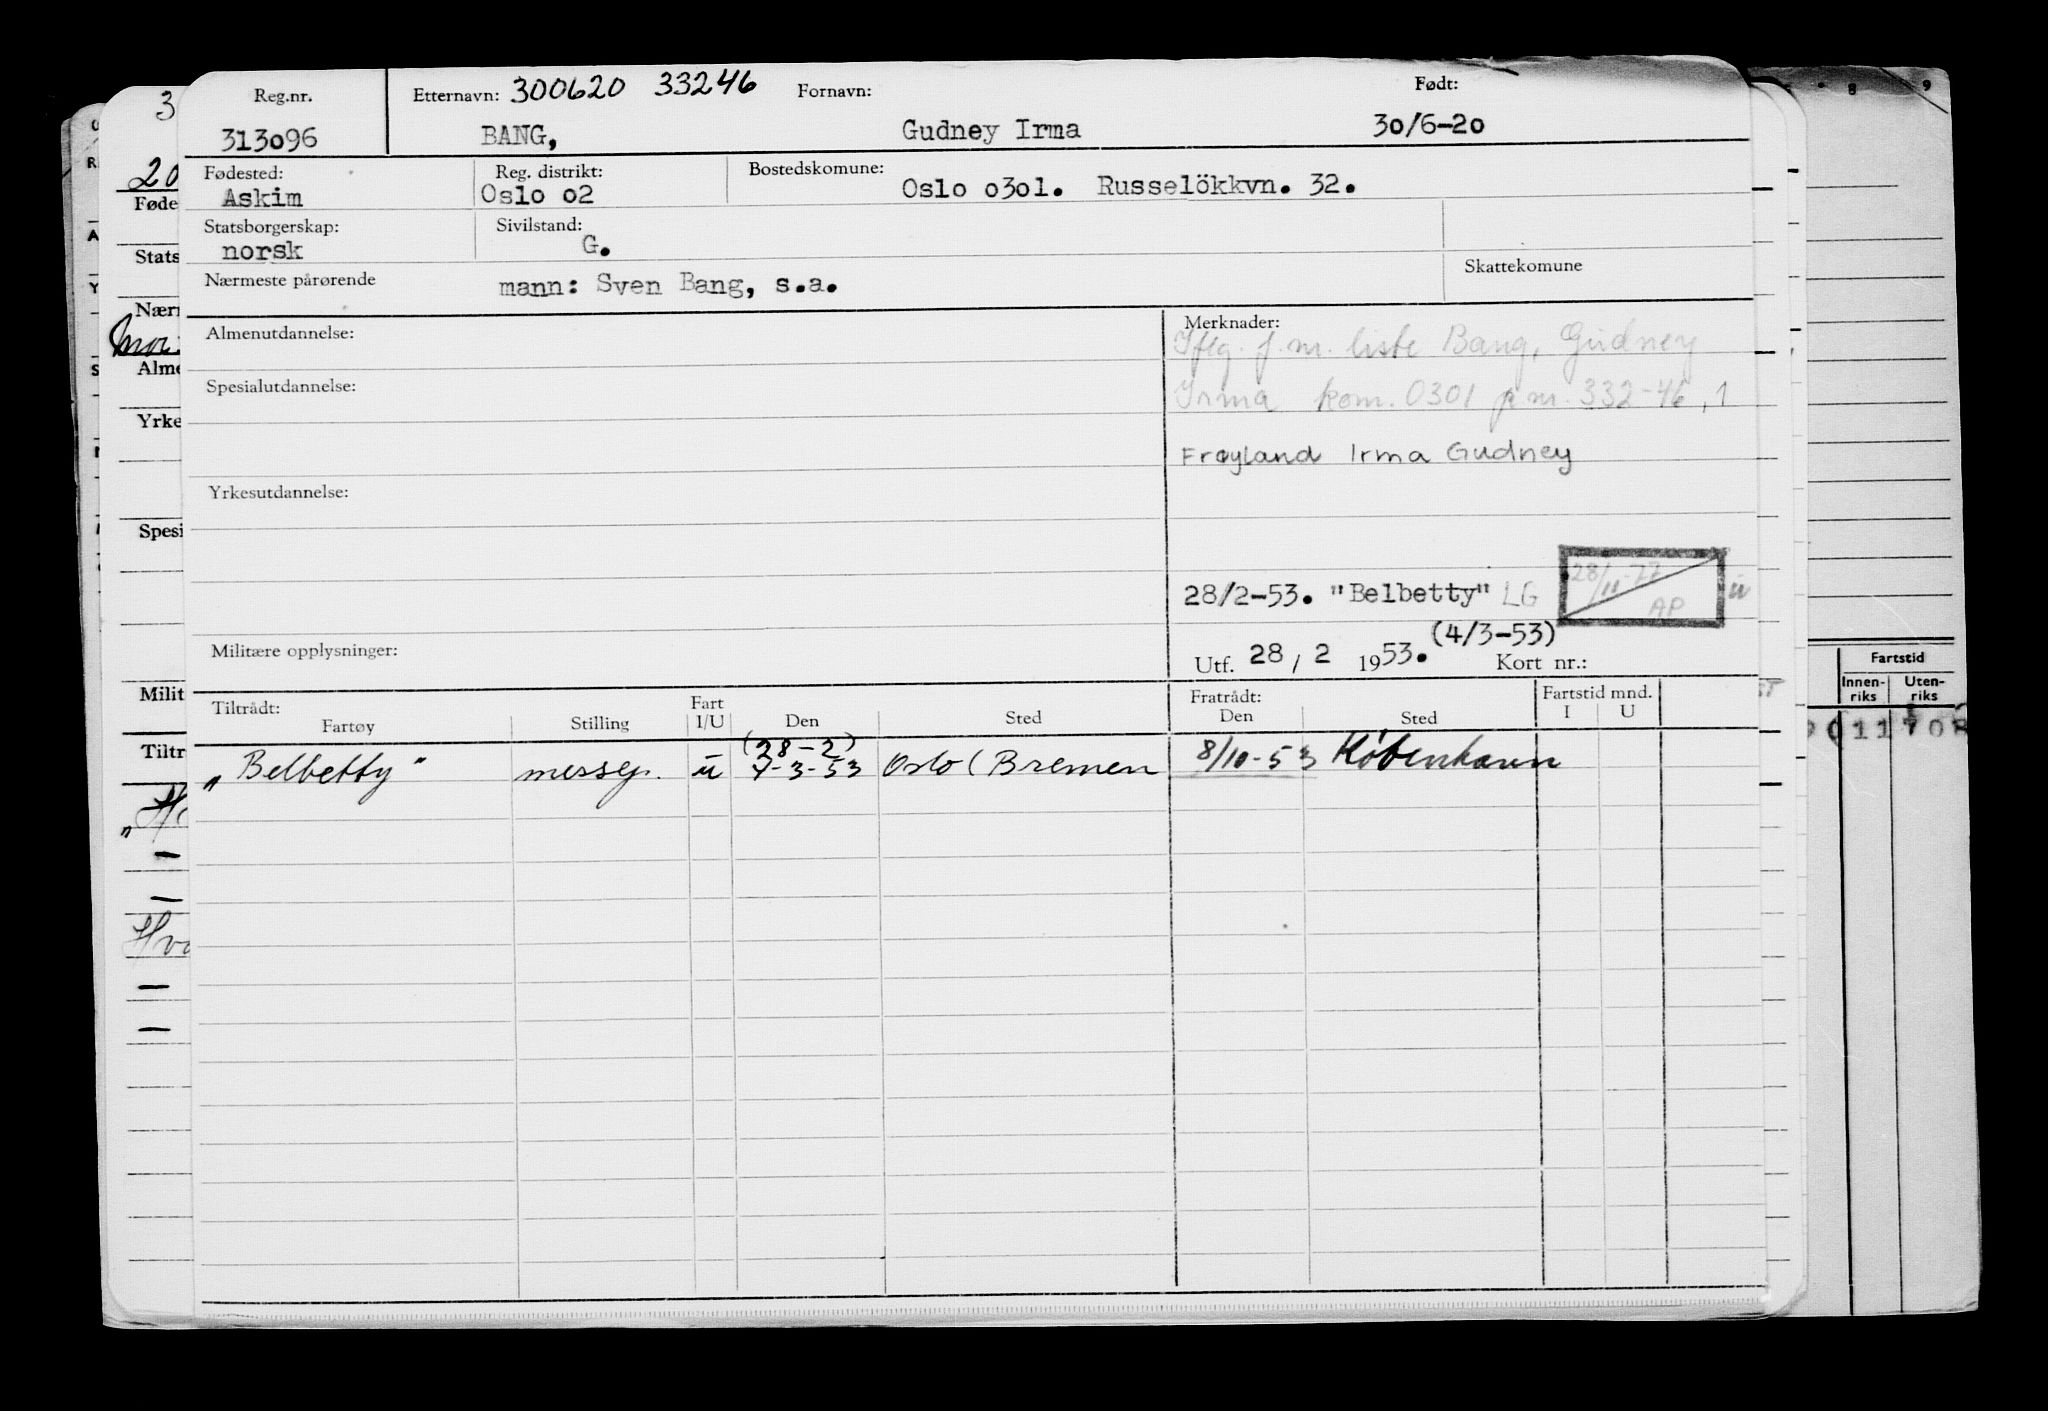 Reg.nr. Etternavn: 300620 33246 Fornavn: Født:
313096 BANG, Gudney Irma 30/6-20
Fødested: Reg. distrikt: Bostedskomune:
Askim Oslo 02 Oslo 0301. Russelökkvn. 32.
Statsborgerskap: Sivilstand:
norsk G.
Nærmeste pårørende mann: Sven Bang, s.a. Skattekomune
Almenutdannelse: Merknader:
Iflg. f.nr. liste Bang, Gudney
Spesialutdannelse: Irma kom. 0301 p nr. 332-46, 1
Frøyland Irma Gudney
Yrkesutdannelse:
28/2-53. "Belbetty" LG 28/11-77 AP ü
Militære opplysninger: (4/3-53)
Utf. 28 / 2 1953. Kort nr.:
Tiltrådt: Fart Fratrådt: Fartstid mnd.
Fartøy Stilling I/U Den Sted Den Sted I U
(28-2)
„Belbetty" messep. u 7-3-53 Oslo (Bremen 8/10-53 København
3
20
Føde
Stats
Nærr
Mor:
Alme
Yrke
Spesi
Milit
Tiltr
„H
—
—
Hva
—
—
8 9
Fartstid
Innen-riks Uten-riks